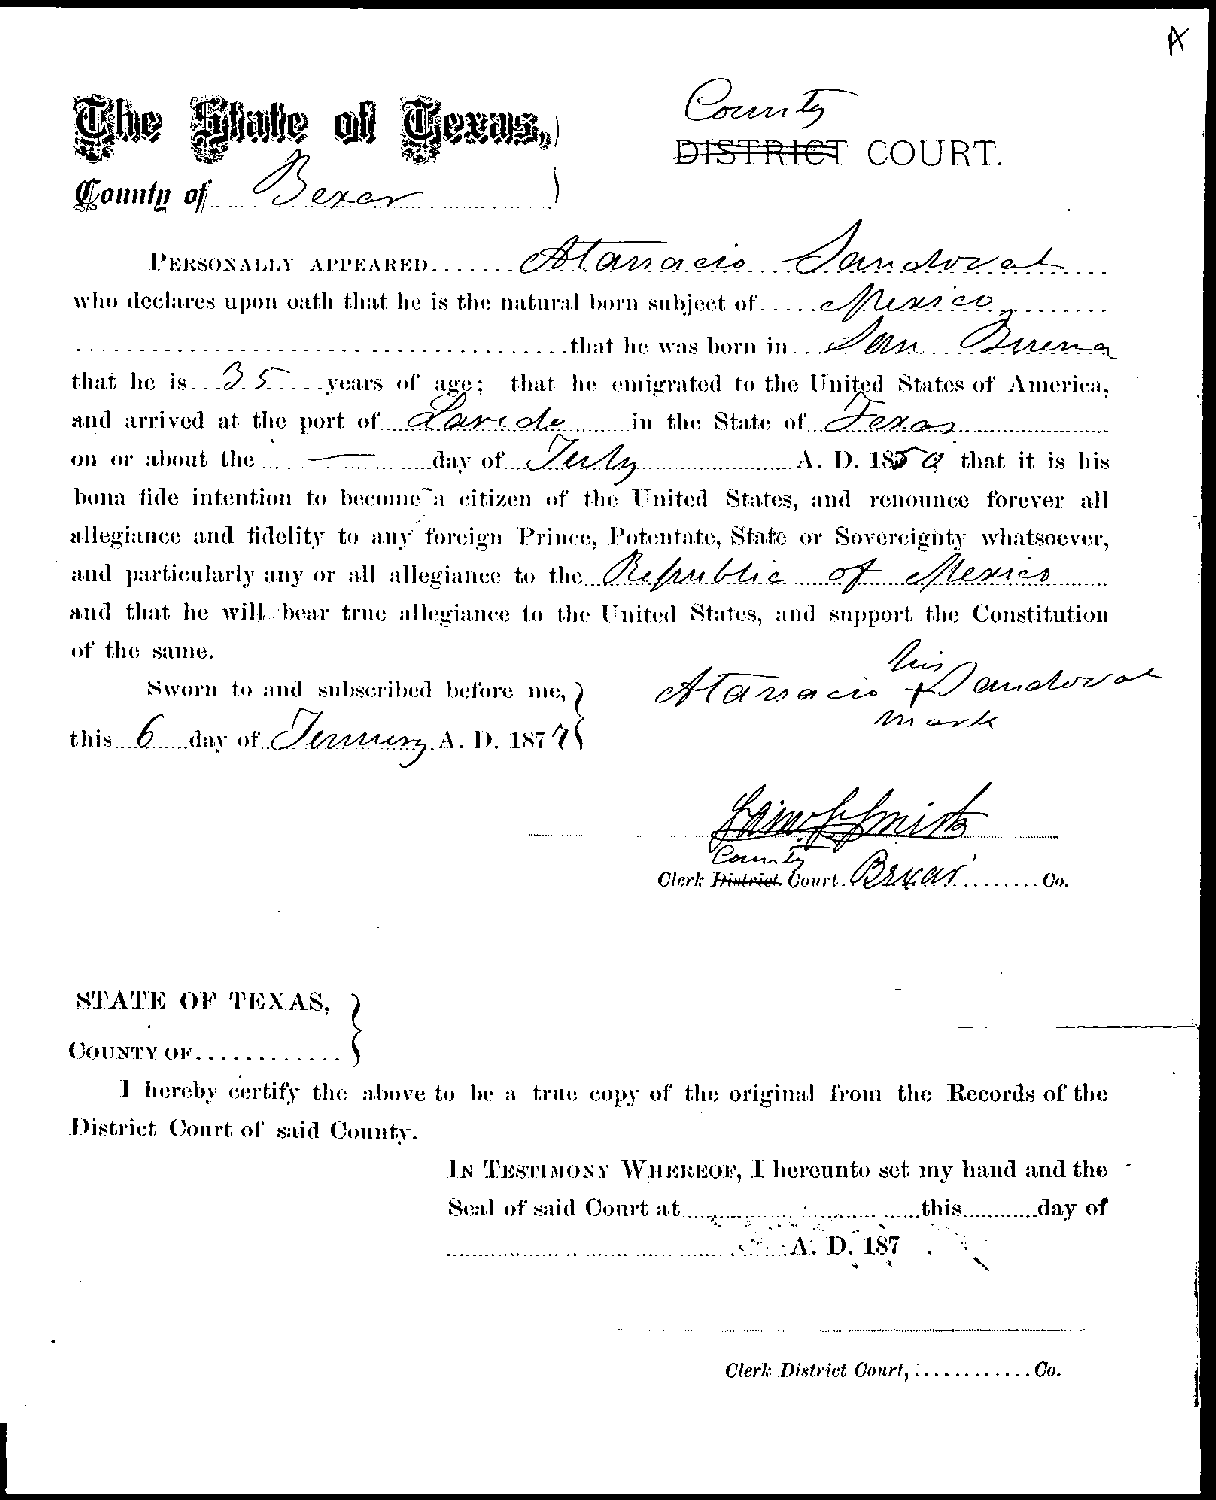 A
The State of Texas,
County of Bexar
County
DISTRICT COURT.
PERSONALLY APPEARED Atanacio Sandoval
who declares upon oath that he is the natural born subject of Mexico
that he was born in San Buena
that he is 35 years of age; that he emigrated to the United States of America,
and arrived at the port of Laredo in the State of Texas
on or about the — day of July A. D. 1859 that it is his
bona fide intention to become a citizen of the United States, and renounce forever all
allegiance and fidelity to any foreign Prince, Potentate, State or Sovereignty whatsoever,
and particularly any or all allegiance to the Republic of Mexico
and that he will bear true allegiance to the United States, and support the Constitution
of the same.
Sworn to and subscribed before me,
this 6 day of January A. D. 1877
his
Atanacio + Sandoval
mark
Smith
County
Clerk District Court Bexar Co.
STATE OF TEXAS,
COUNTY OF
I hereby certify the above to be a true copy of the original from the Records of the
District Court of said County.
IN TESTIMONY WHEREOF, I hereunto set my hand and the
Seal of said Court at this day of
A. D. 187
Clerk District Court, Co.